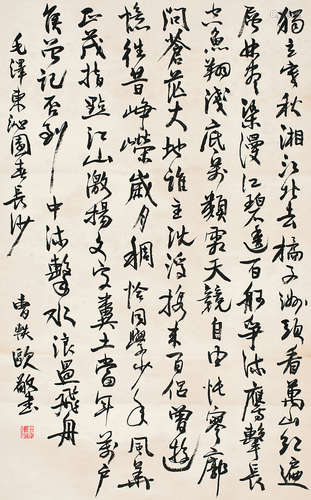 獨立寒秋湘江北去橘子洲頭看萬山紅遍
層林盡染漫江碧透百舸爭流鷹擊長
空魚翔淺底萬類霜天競自由悵寥廓
問蒼茫大地誰主沉浮攜來百侶曾遊
憶往昔崢嶸歲月稠恰同學少年風華
正茂指點江山激揚文字糞土當年萬戶
侯曾記否到中流擊水浪遏飛舟
毛澤東沁園春長沙
歐